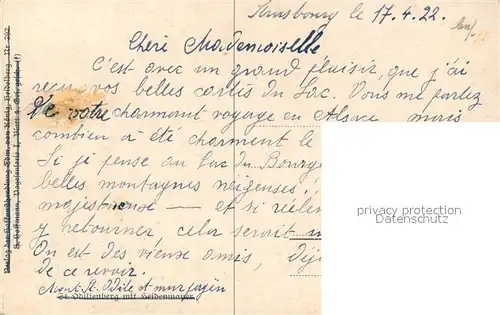 Strasbourg le 17.4.22.
Chéri Mademoiselle
C'est avec un grand plaisir, que j'ai
reçu vos belles cartes du Lac. Vous me parlez
de votre charmant voyage en Alsace mais
combien a été charment le
Si je pense au Lac du Bourg
belles montagnes neigeuses!!
majestueuse — et si
y retourner cela serait
On est des vieux amis,
de ce revoir.
Mont St. Odile et mur payen
St. Odilienberg mit Heidenmauer
privacy protection
Datenschutz